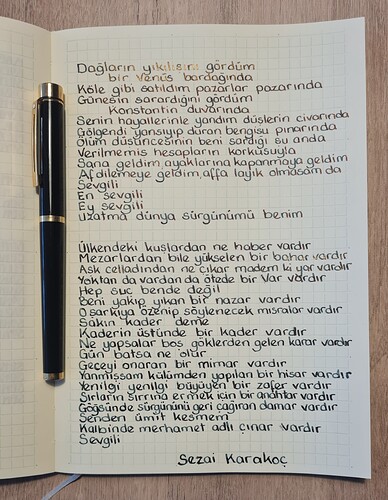 Dağların yıkılışını gördüm
bir Venüs bardağında
Köle gibi satıldım pazarlar pazarında
Güneşin sarardığını gördüm
Konstantin duvarında
Senin hayallerinle yandım düşlerin civarında
Gölgendi yansıyıp duran bengisu pınarında
Ölüm düşüncesinin beni sardığı şu anda
Verilmemiş hesapların korkusuyla
Sana geldim ayaklarına kapanmaya geldim
Af dilemeye geldim affa layık olmasam da
Sevgili
En sevgili
Ey sevgili
Uzatma dünya sürgünümü benim
Ülkendeki kuşlardan ne haber vardır
Mezarlardan bile yükselen bir bahar vardır
Aşk celladından ne çıkar madem ki yar vardır
Yoktan da vardan da ötede bir Var vardır
Hep suç bende değil
beni yakıp yıkan bir nazar vardır
O şarkıya özenip söylenecek mısralar vardır
Sakın kader deme
Kaderin üstünde bir kader vardır
Ne yapsalar boş göklerden gelen karar vardır
Gün batsa ne olur
Geceyi onaran bir mimar vardır
Yanmışsam külümden yapılan bir hisar vardır
Yenilgi yenilgi büyüyen bir zafer vardır
Sırların sırrına ermek için bir anahtar vardır
Göğsünde sürgününü geri çağıran damar vardır
Senden ümit kesmem
Kalbinde merhamet adlı çınar vardır
Sevgili
Sezai Karakoç